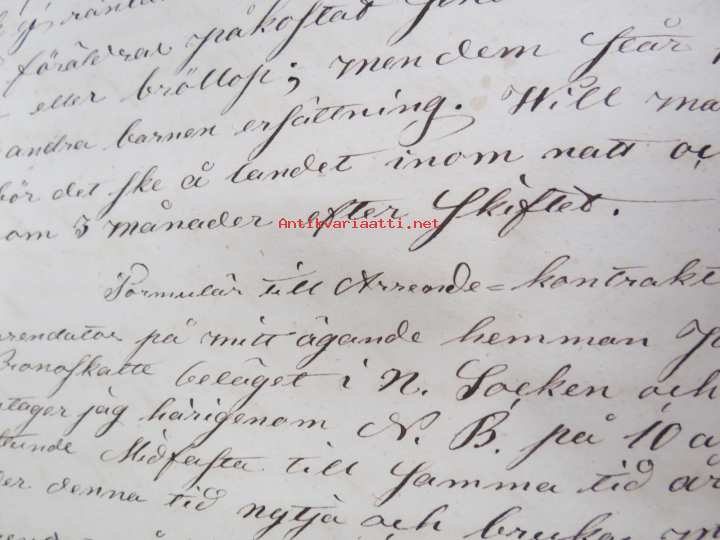 föräldrar påkostad
eller bröllop; men dem står
andra barnen ersättning. Will
bör det ske å landet inom natt oc
om 3 månader efter skiftet.
Antikvariaatti.net
Formulär till Arrende=kontrakt
rrendator på mitt ägande hemman
Kronoskatte beläget i N. Socken och
ntager jag härigenom N. B. på 10 å
stunde Midfasta till samma tid år
der denna tid nytja och bruka